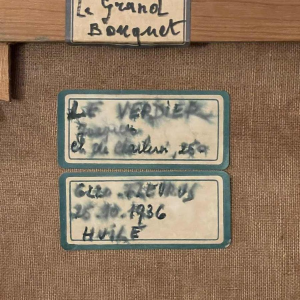 Le Grand
Bouquet
LE VERDIER
Jacques
Ch. de Charleroi, 25a
6220 FLEURUS
25.10.1936
HUILE